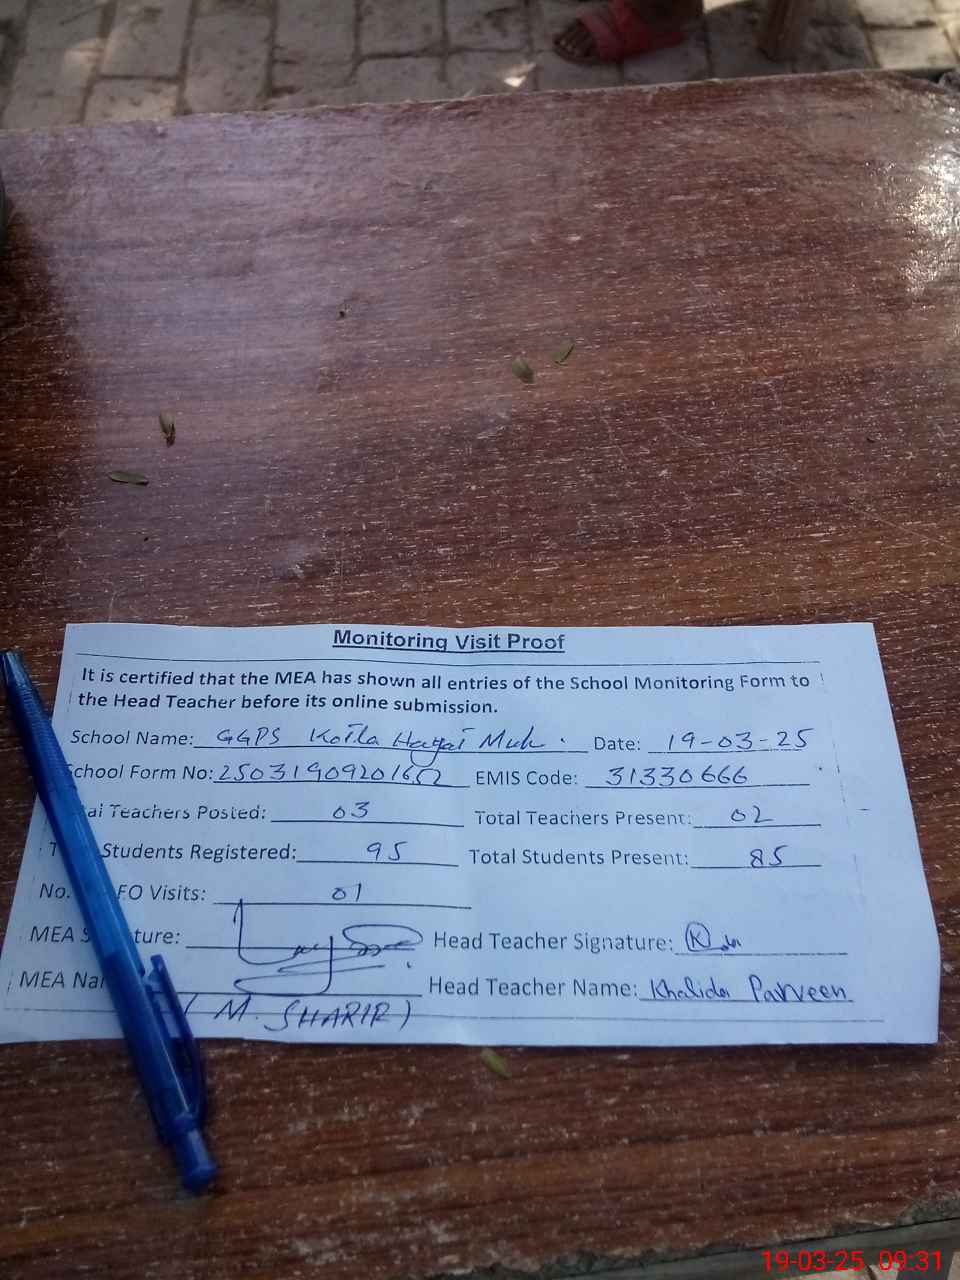 Monitoring Visit Proof
It is certified that the MEA has shown all entries of the School Monitoring Form to
the Head Teacher before its online submission.
School Name: GGPS Kotla Hagai Muh. Date: 19-03-25
School Form No: 25031909201652 EMIS Code: 31330666
Teachers Posted: 03 Total Teachers Present: 02
Students Registered: 95 Total Students Present: 85
No. FO Visits: 01
MEA Head Teacher Signature:
MEA Head Teacher Name: Khalida Parveen
(M. SHARIF)
19-03-25 09:31